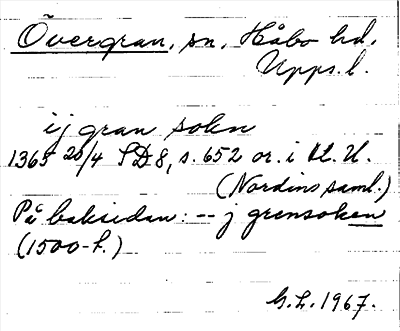 Övergran, sn, Håbo hd,
Upps. l.
ij gran sokn
1365 20/4 SD 8, s. 652 or. i Ub. U.
(Nordins saml.)
På baksidan: -- j grensoken
(1500-t.)
G. L. 1967.